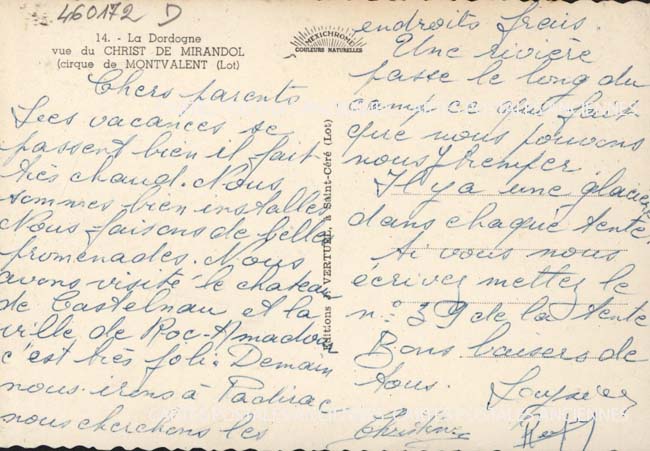 460172 D
14. - La Dordogne
vue du CHRIST DE MIRANDOL
(cirque de MONTVALENT (Lot)
MEXICHROME
COULEURS NATURELLES
Chers parents
Les vacances se
passent bien il fait
très chaud. Nous
sommes bien installés
Nous faisons de belles
promenades. Nous
avons visité le chateau
de Castelnau et la
ville de Roc-Amadour
c'est très joli. Demain
nous irons à Padirac
nous cherchons les
Editions VERTUEL, à Saint-Céré (Lot)
endroits frais.
Une rivière
passe le long du
camp ce qui fait
que nous pouvons
nous tremper.
Il y a une glacière
dans chaque tente
si vous nous
écrivez mettez le
n° 39 de la tente
Bons baisers de
tous.
Christine